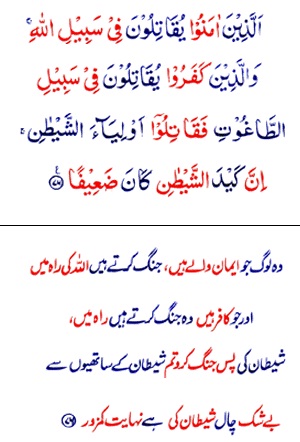 اَلَّذِیْنَ اٰمَنُوْا یُقَاتِلُوْنَ فِیْ سَبِیْلِ اللّٰهِ ۚ
وَالَّذِیْنَ كَفَرُوْا یُقَاتِلُوْنَ فِیْ سَبِیْلِ
الطَّاغُوْتِ فَقَاتِلُوْۤا اَوْلِیَآءَ الشَّیْطٰنِ ۚ
اِنَّ كَیْدَ الشَّیْطٰنِ كَانَ ضَعِیْفًا ﴿۷۶﴾
وہ لوگ جو ایمان والے ہیں، جنگ کرتے ہیں اللہ کی راہ میں
اور جو کافر ہیں وہ جنگ کرتے ہیں راہ میں،
شیطان کی پس جنگ کرو تم شیطان کے ساتھیوں سے
بے شک چال شیطان کی ہے نہایت کمزور ﴿۷۶﴾